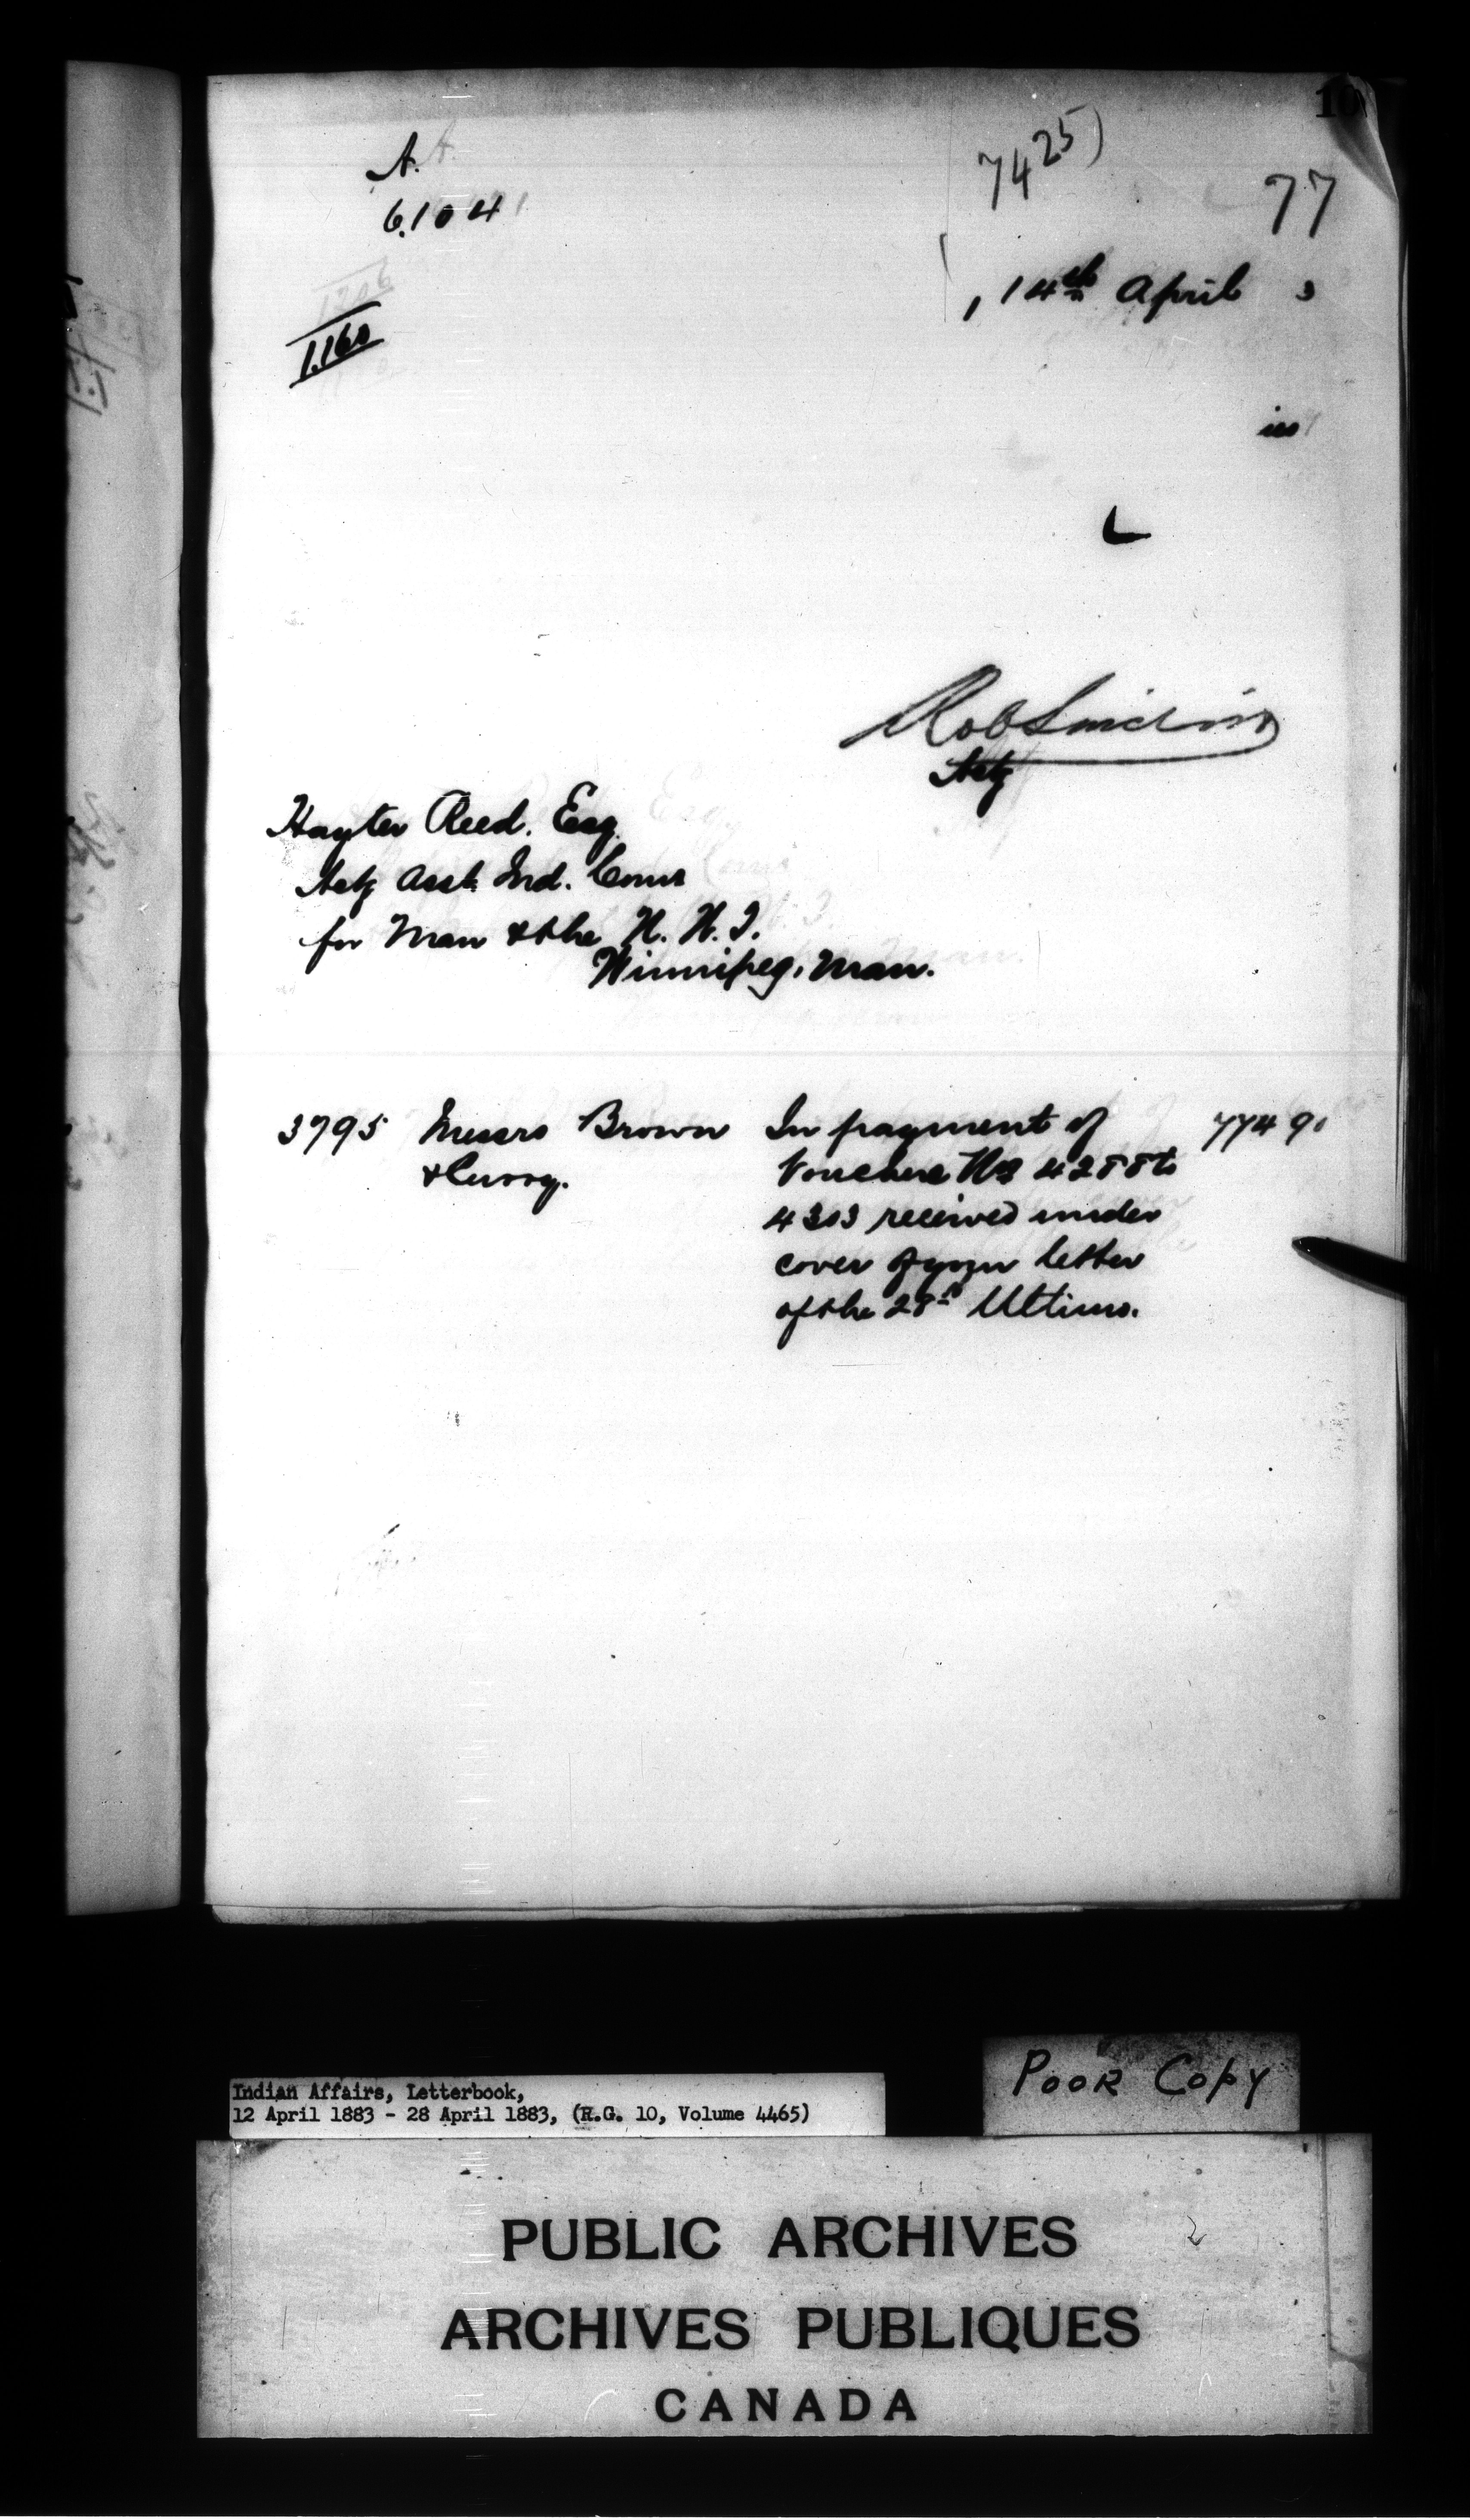 10
A.
6104
7425)
77
, 14th April 3
1206
1.160
ies
Robt Sinclair
Actg
Hayter Reed. Esq.
Actg Asst. Ind. Comr
for Man & the N. W. T.
Winnipeg, Man.
3795 Messrs Brown In payment of 774 91
& Curry. Vouchers Nos 4288 to
4303 received under
cover of your letter
of the 28th Ultimo.
Indian Affairs, Letterbook,
12 April 1883 - 28 April 1883, (R.G. 10, Volume 4465)
POOR COPY
PUBLIC ARCHIVES
2
ARCHIVES PUBLIQUES
CANADA